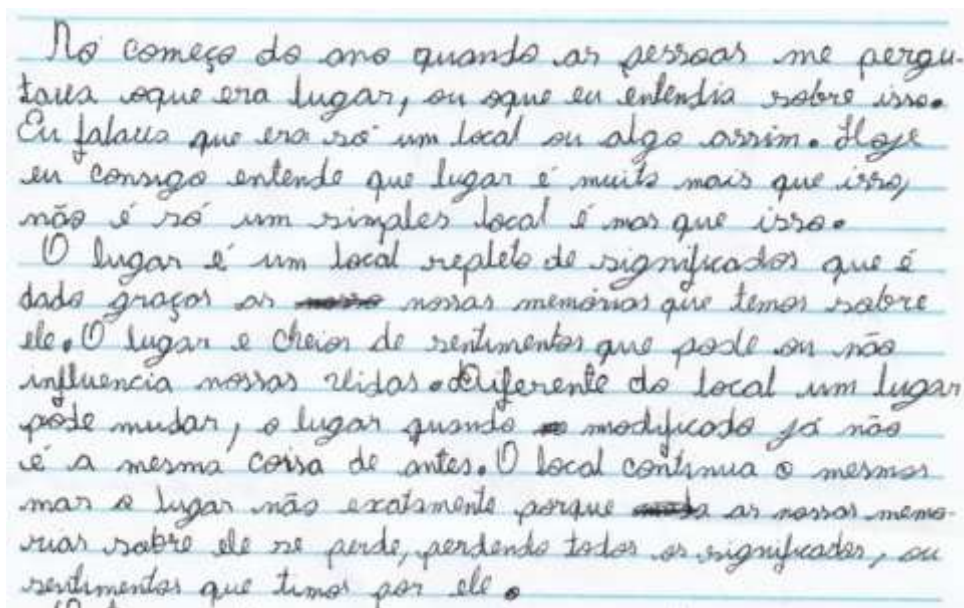 No começo do ano quando as pessoas me pergu-
tava oque era lugar, ou oque eu entendia sobre isso.
Eu falava que era só um local ou algo assim. Hoje
eu consigo entende que lugar é muito mais que isso,
não é só um simples local é mas que isso.
O lugar é um local repleto de significados que é
dado graças as nossas memórias que temos sobre
ele. O lugar e cheios de sentimentos que pode ou não
influencia nossas vidas. Diferente do local um lugar
pode mudar, o lugar quando modificado já não
é a mesma coisa de antes. O local continua o mesmos
mas o lugar não exatamente porque as nossas memo-
rias sobre ele se perde, perdendo todos os significados, ou
sentimentos que timos por ele.